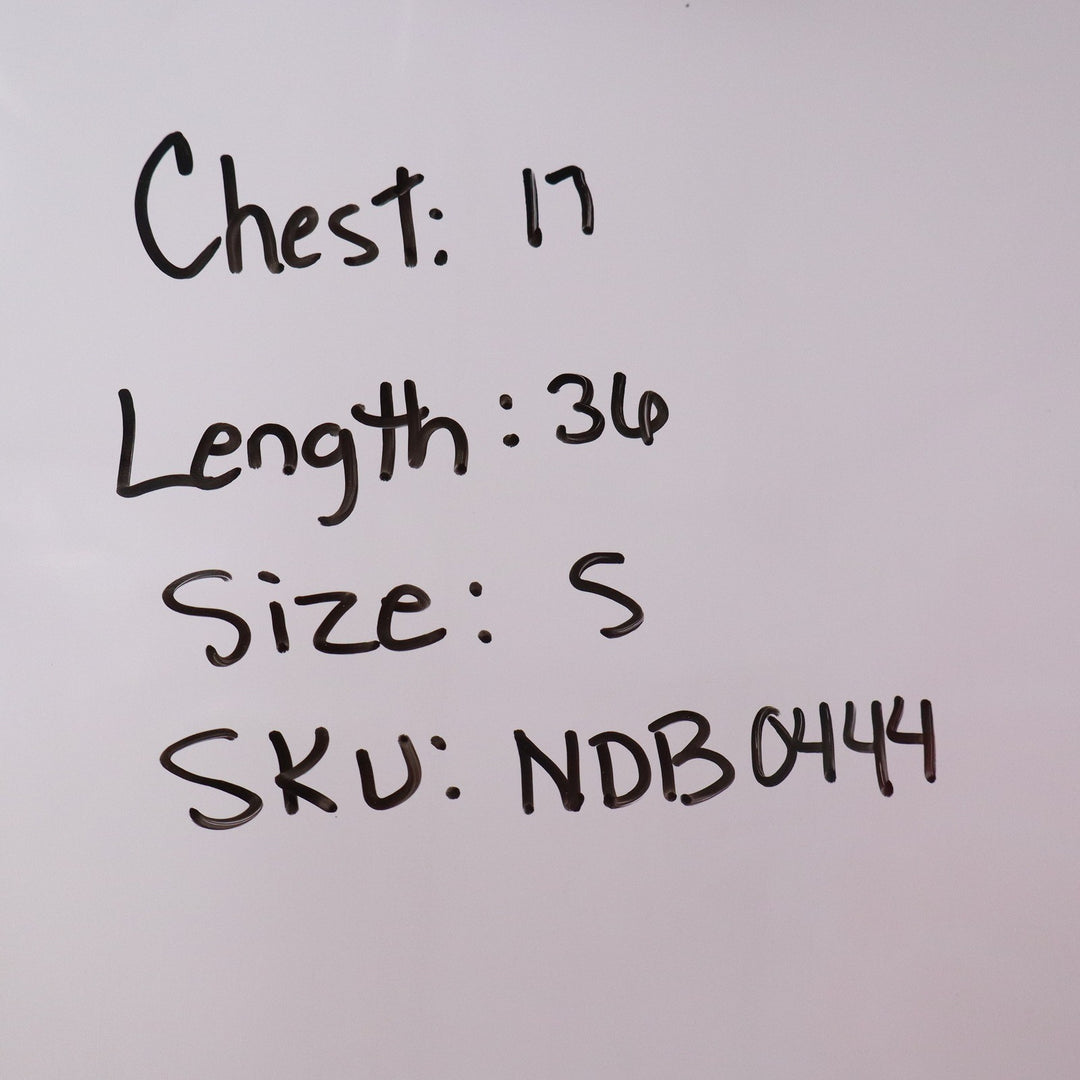 Chest: 17
Length: 36
Size: S
SKU: NDB0444